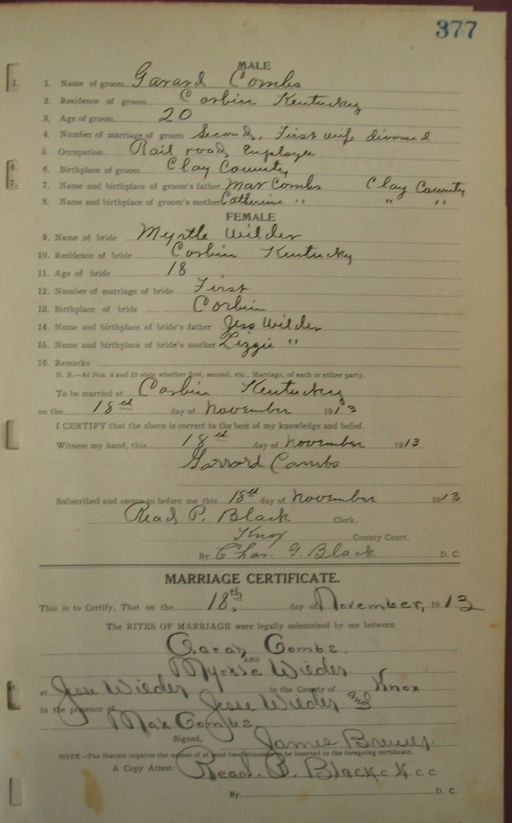 377
MALE
1. Name of groom Garard Combs
2. Residence of groom Corbin Kentucky
3. Age of groom 20
4. Number of marriage of groom Second. First wife divorced
5. Occupation Rail road Employee
6. Birthplace of groom Clay County
7. Name and birthplace of groom's father Max Combs Clay County
8. Name and birthplace of groom's mother Catherine " " "
FEMALE
9. Name of bride Myrtle Wilder
10. Residence of bride Corbin Kentucky
11. Age of bride 18
12. Number of marriage of bride First
13. Birthplace of bride Corbin
14. Name and birthplace of bride's father Jess Wilder
15. Name and birthplace of bride's mother Lizzie "
16. Remarks
N. B.—At Nos. 4 and 12 state whether first, second, etc., Marriage, of each or either party.
To be married at Corbin Kentucky
on the 18th day of November 1913
I CERTIFY that the above is correct to the best of my knowledge and belief.
Witness my hand, this 18th day of November 1913
Garrard Combs
Subscribed and sworn to before me this 18th day of November 1913
Read P. Black Clerk.
Knox County Court.
By Chas. G. Black D. C.
MARRIAGE CERTIFICATE.
This is to Certify, That on the 18th. day of November, 1913
The RITES OF MARRIAGE were legally solemnized by me between
Garar Combs.
AND
Myrtle Wilder
at Jesse Wilder in the County of Knox
in the presence of Jesse Wilder and
Max Combs
Signed, James Brewer.
NOTE—The Statute requires the names of at least two witnesses to be inserted in the foregoing certificate.
A Copy Attest: Read. P. Black C K C C
By D. C.